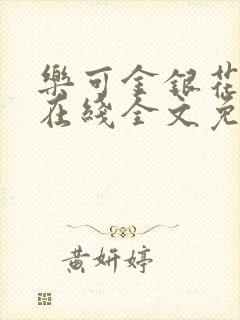 樂可金銀花
在綫全文免
黃妍婷